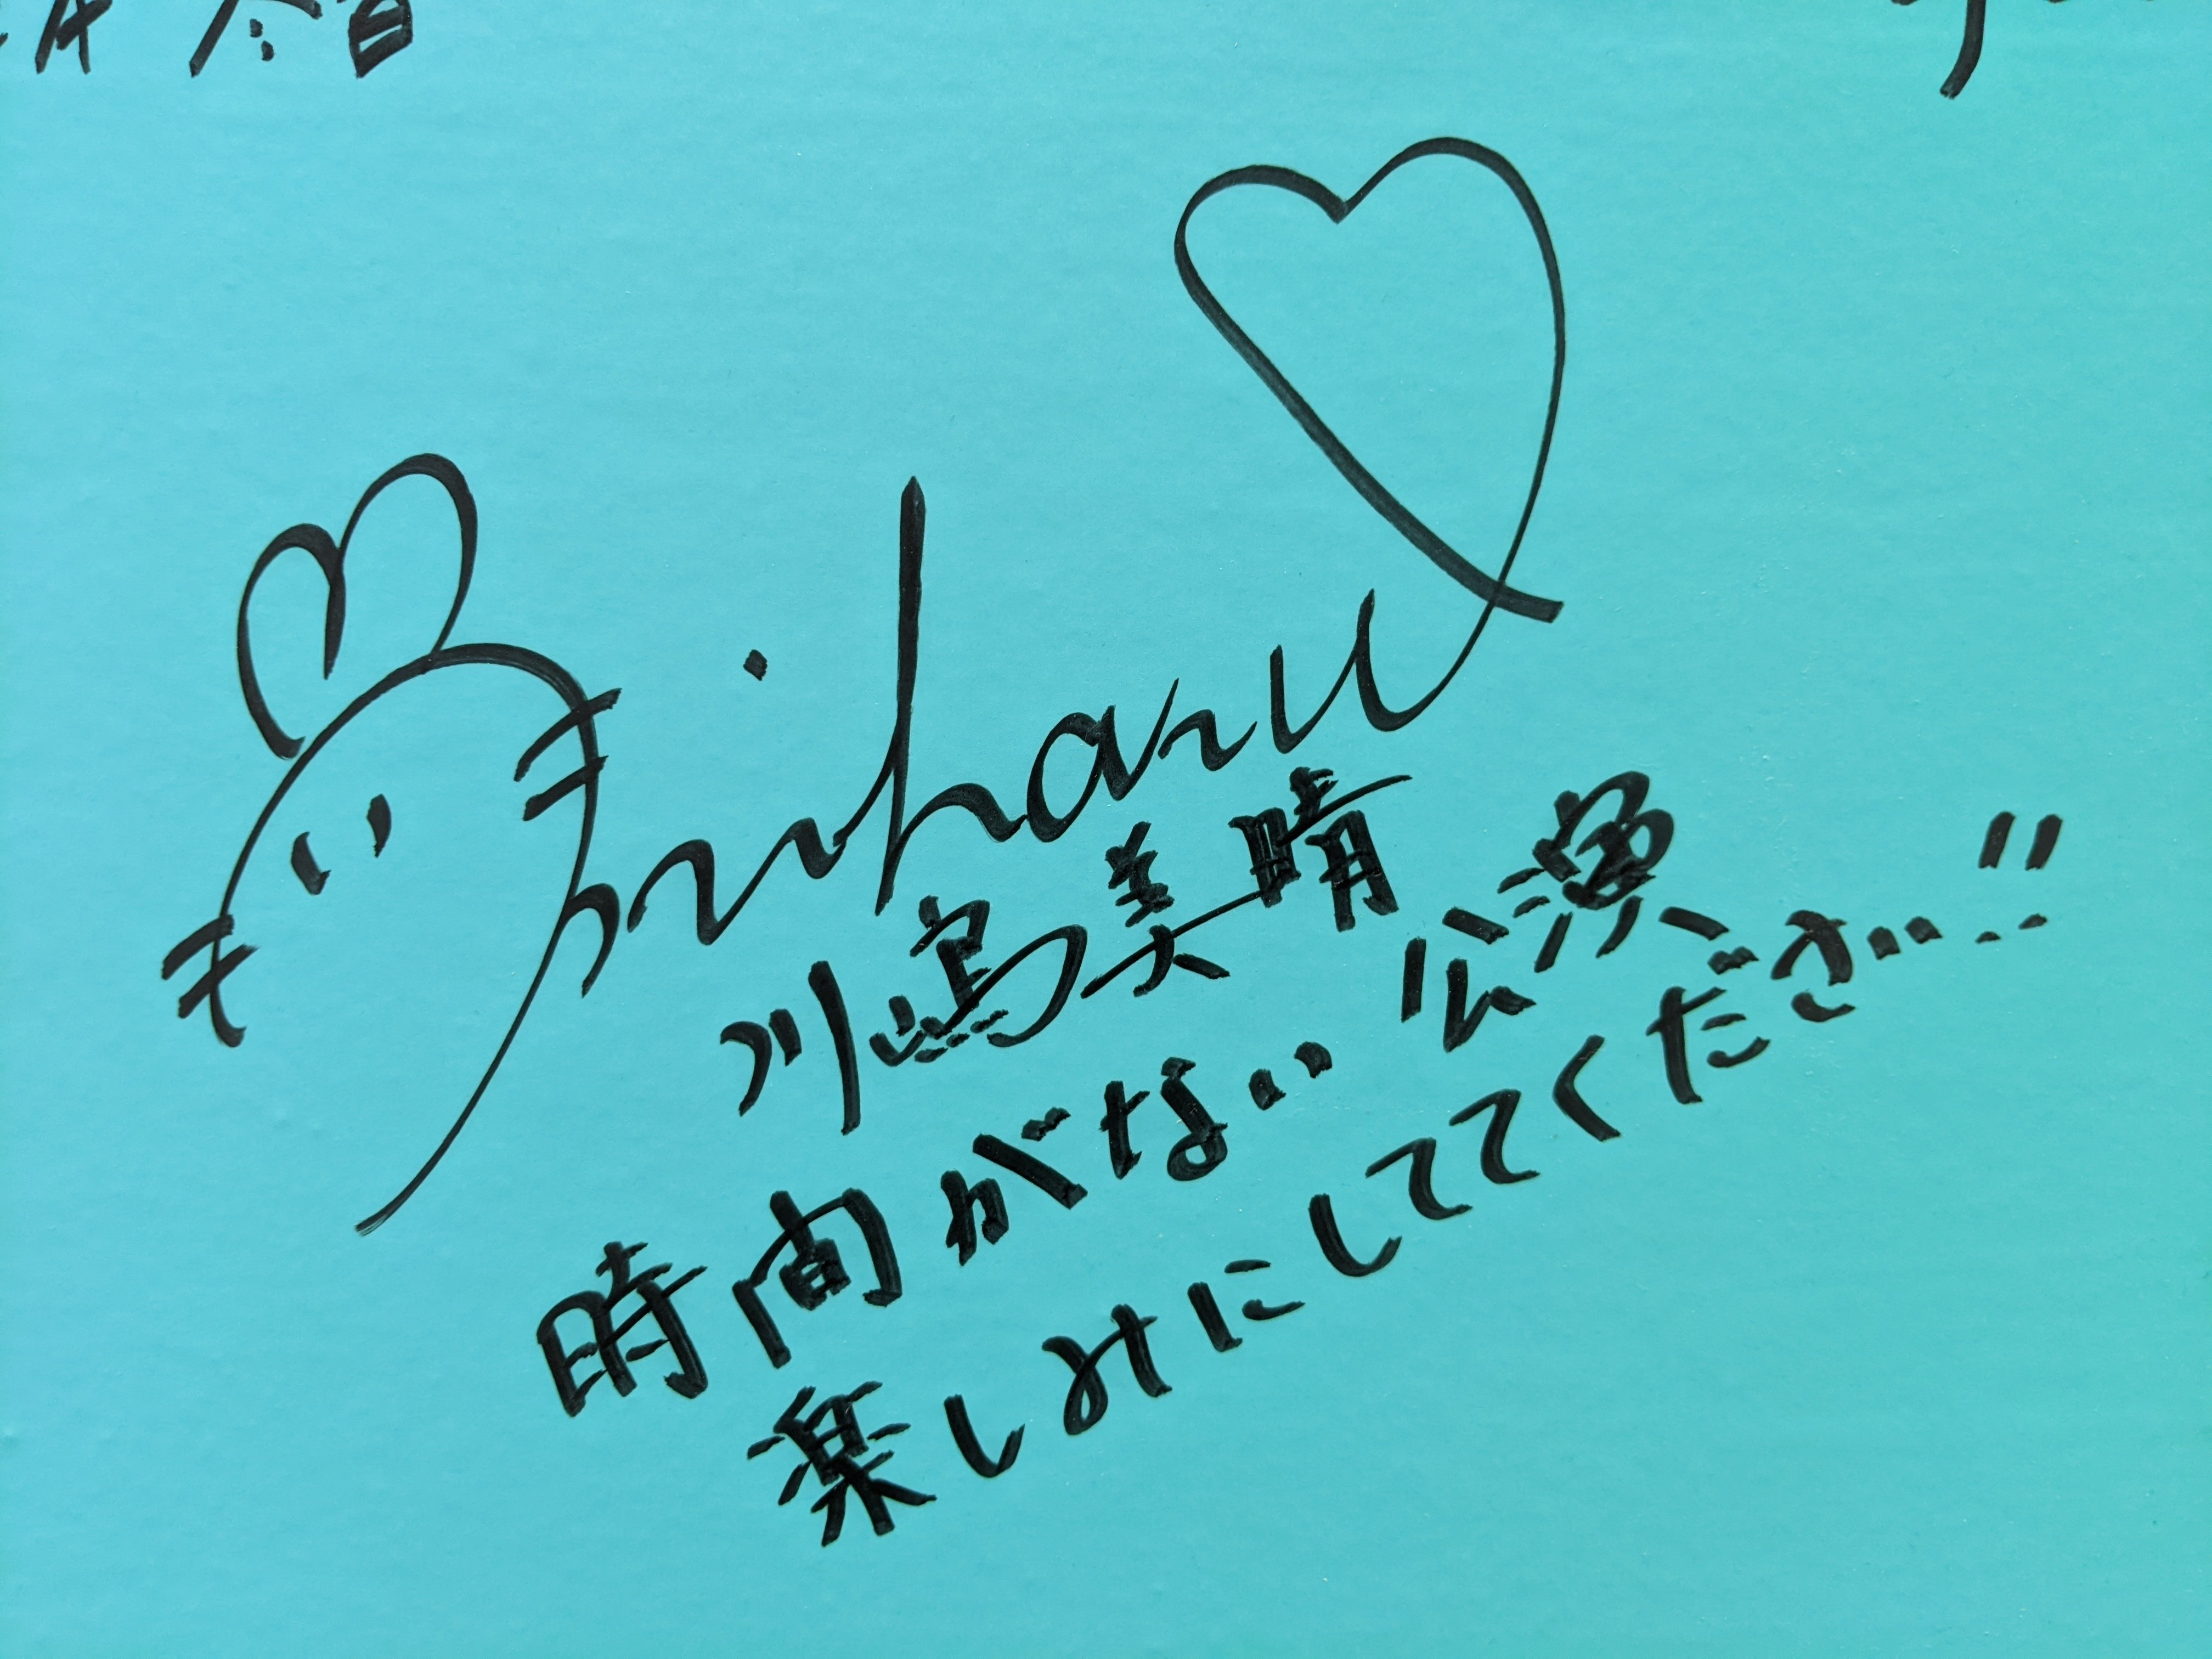 Miharu
川嶌美晴
時間がない公演
楽しみにしててください!!